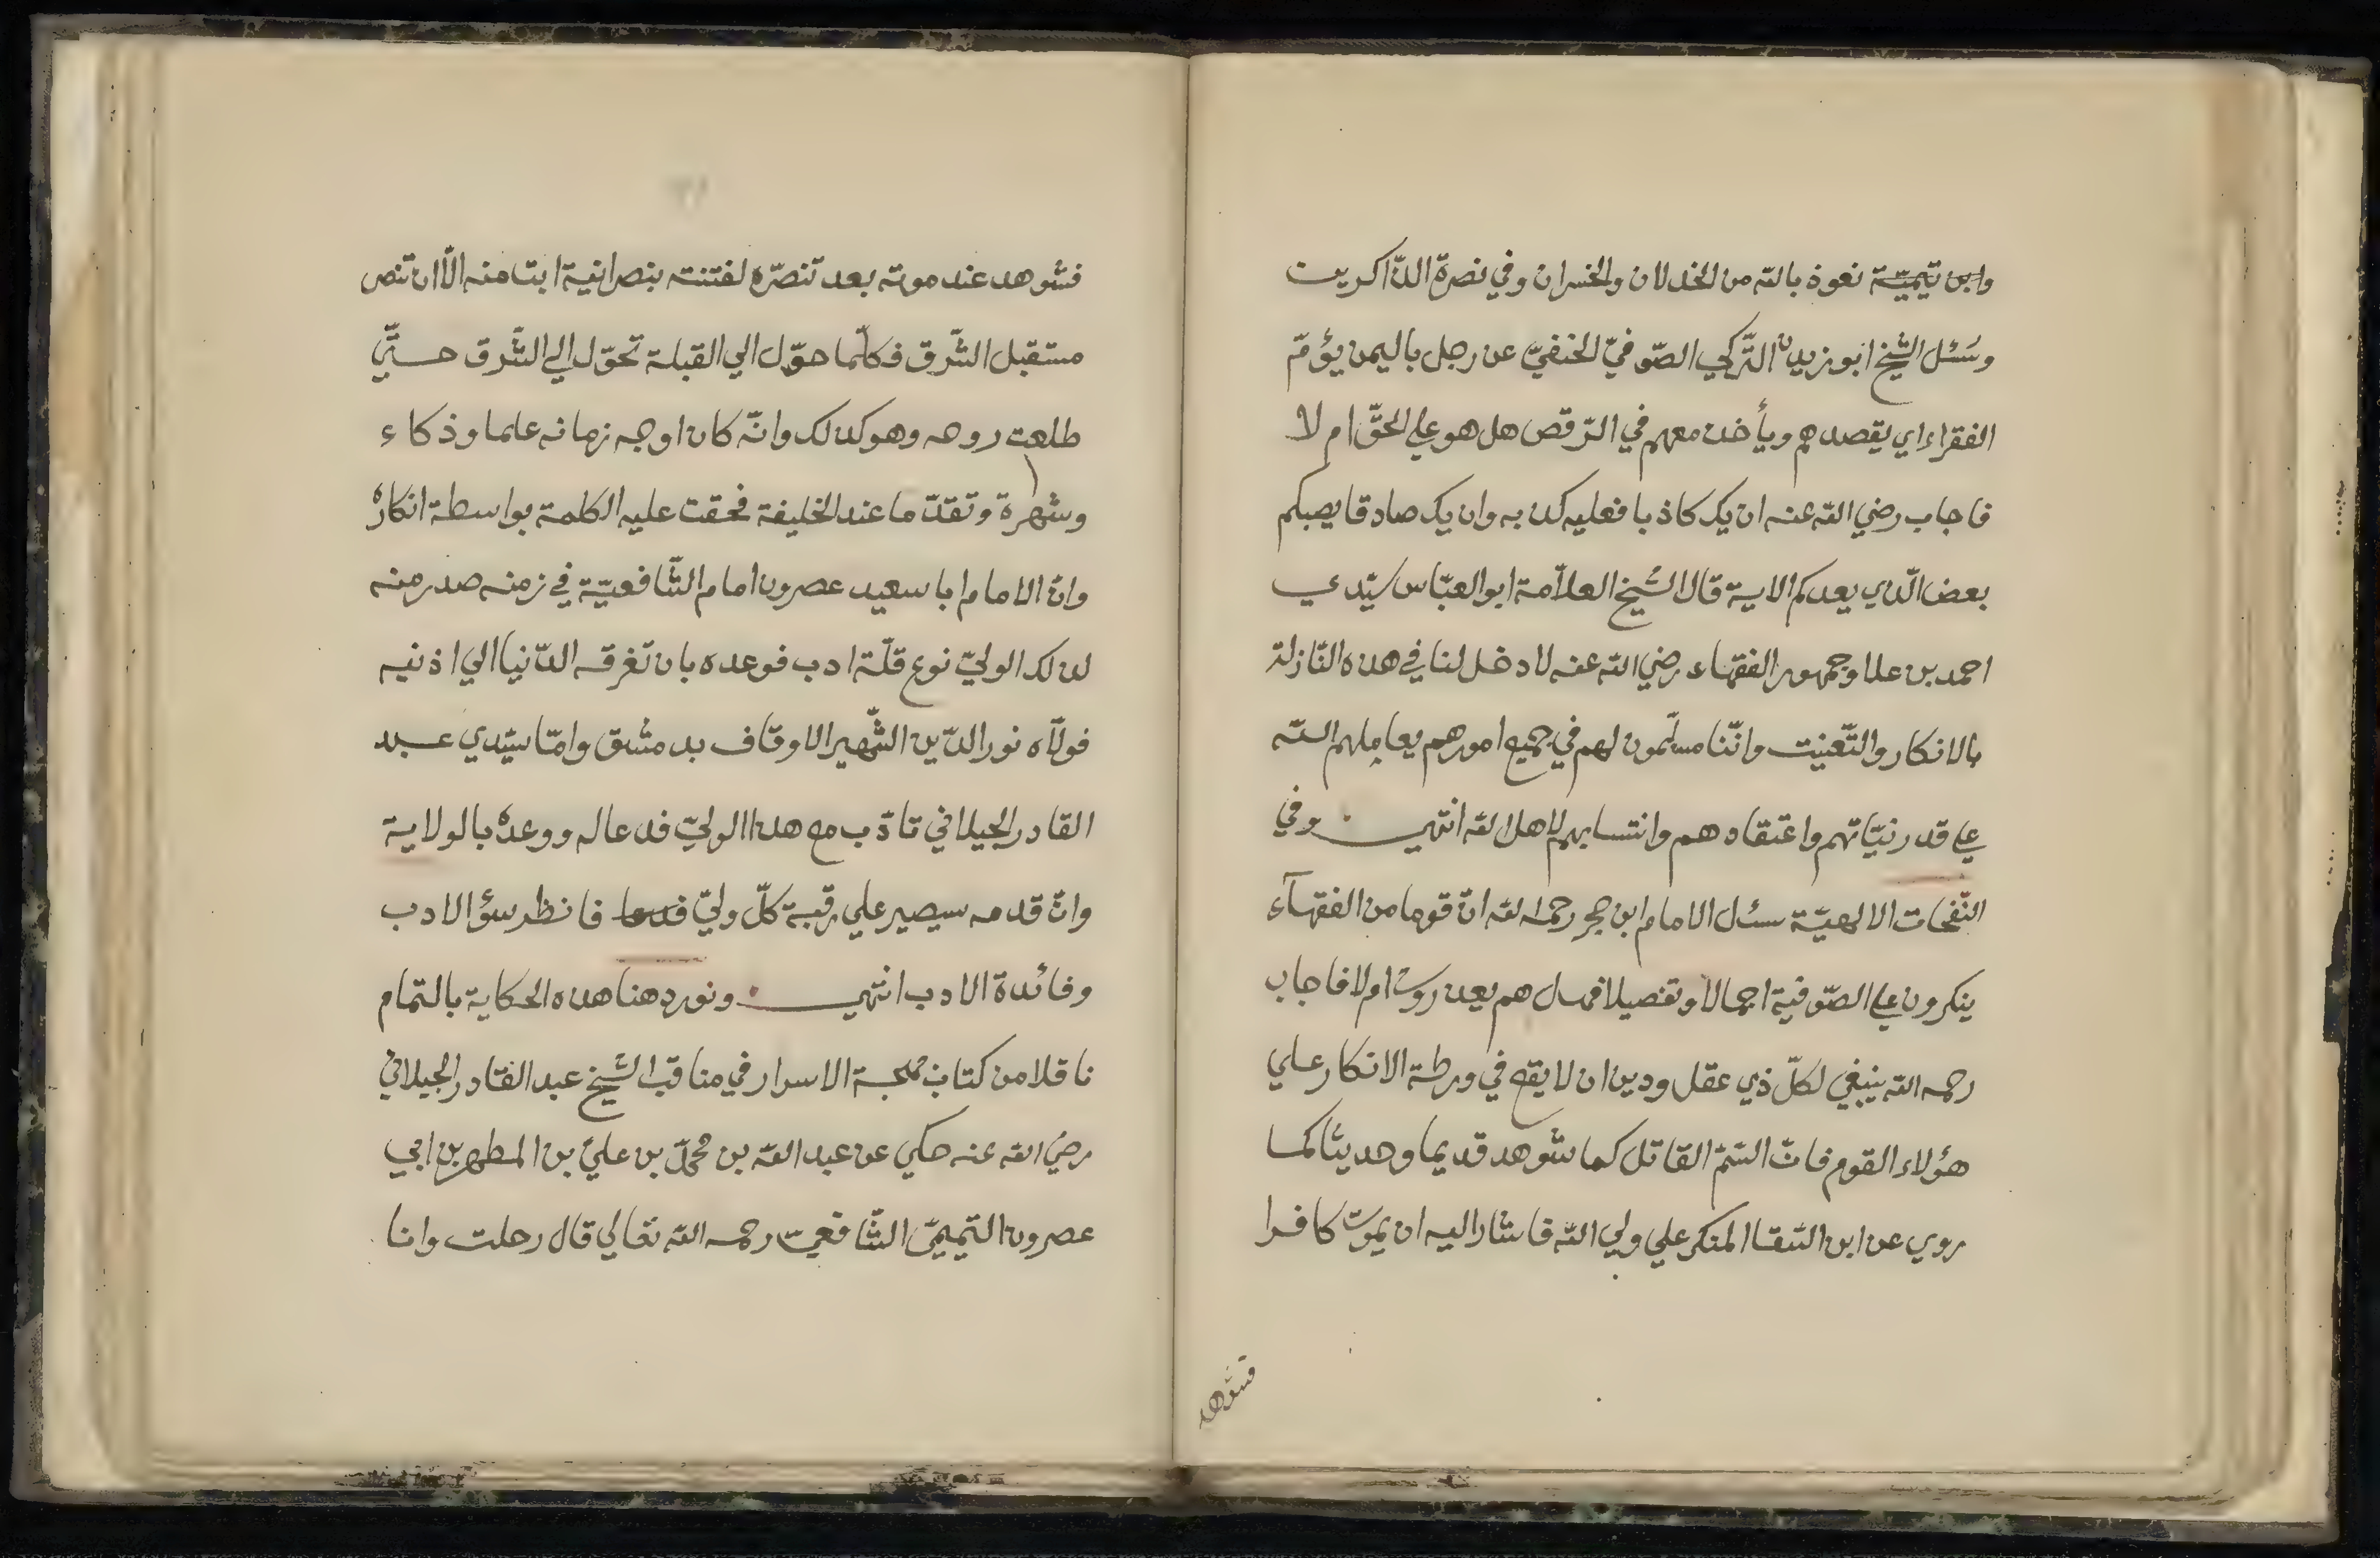 وابن تيميّة نعوذ بالله من الخذلان والخسران وفي نصرة الذّاكرين
وسُئل الشّيخ ابو يزيد التّركي الصّوفيّ الحنفيّ عن رجل باليمن يؤمّ
الفقراء اي يقصدهم ويأخذ معهم في الرّقص هل هو علي الحقّ ام لا
فاجاب رضي الله عنه ان يك كاذبا فعليه كذبه وان يك صادقا يصبكم
بعض الّذي يعدكم الاية قال الشّيخ العلاّمة ابو العبّاس سيّدي
احمد بن علا وجمهور الفقهاء رضي الله عنه لا دخل لنا في هذه النّازلة
بالانكار والتّعنيت وانّنا مسلّمون لهم في جميع امورهم يعاملهم الله
علي قدر نيّاتهم واعتقادهم وانتسابهم لاهل الله انتهي وفي
النّفحات الالهيّة سئل الامام ابن حجر رحمه الله انّ قوما من الفقهآء
ينكرون علي الصّوفية اجمالا وتفصيلا فهل هم يعذرون ام لا فاجاب
رحمه الله ينبغي لكلّ ذي عقل ودين ان لا يقع في ورطة الانكار علي
هؤلاء القوم فانّ السّمّ القاتل كما شوهد قديما وحديثا كما
روي عن ابن السّقا المنكر علي ولي الله فاشار اليه ان يموت كافرا
فشوهد
فشوهد عند موته بعد تنصّره لفتنته بنصرانية ابت منه الاّ ان تنصر
مستقبل الشّرق فكلّما حوّل الي القبلة تحوّل الي الشّرق حتّي
طلعت روحه وهو كذلك وانّه كان اوجه زمانه علما وذكاء
وشهرة وتقدّما عند الخليفة فحقت عليه الكلمة بواسطة انكاره
وانّ الامام ابا سعيد عصرون امام الشّافعيّة في زمنه صدر منه
لذلك الوليّ نوع قلّة ادب فوعده بان تغرقه الدّنيا الي اذنيه
فولاّه نور الدّين الشّهير الاوقاف بدمشق وامّا سيّدي عبد
القادر الجيلاني تادّب مع هذا الوليّ فدعا له ووعده بالولاية
وانّ قدمه سيصير علي رقبة كلّ وليّ فدعا فانظر سؤ الادب
وفائدة الادب انتهي ونورد هنا هذه الحكاية بالتمام
ناقلا من كتاب بهجة الاسرار في مناقب الشّيخ عبد القادر الجيلاني
رضي الله عنه حكي عن عبد الله بن محمّد بن عليّ بن المطهر بن ابي
عصرون التّميميّ الشّافعيّ رحمه الله تعالي قال رحلت وانا